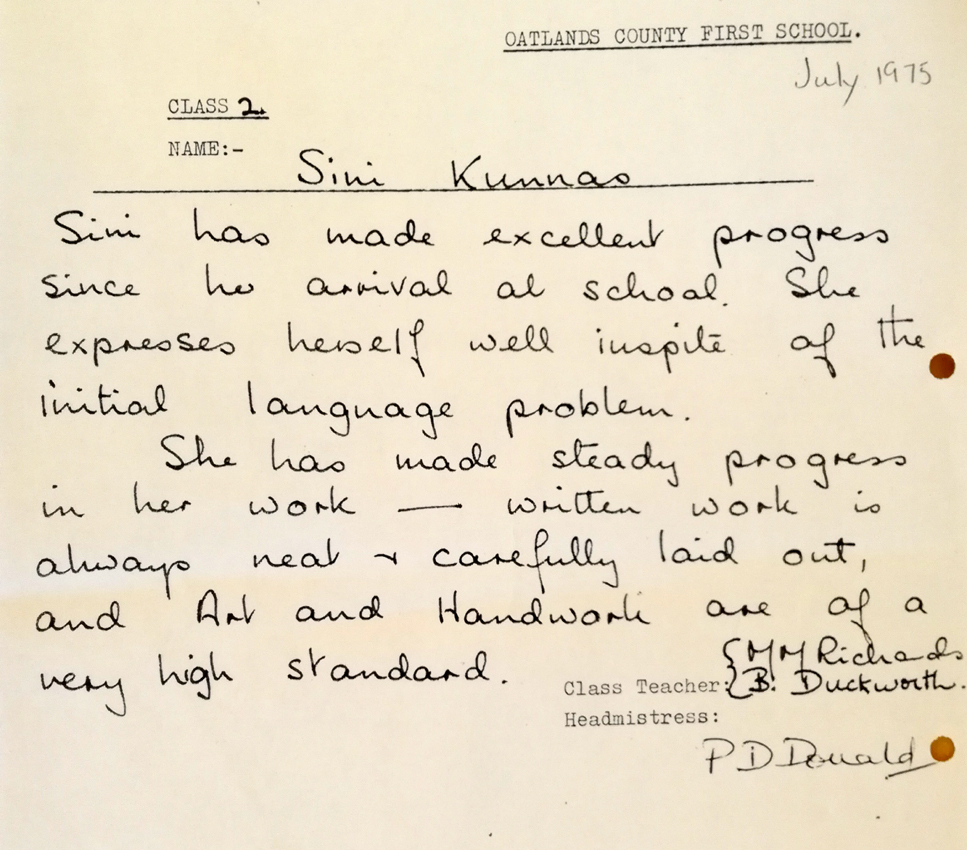 OATLANDS COUNTY FIRST SCHOOL.
July 1975
CLASS 2.
NAME:-
Sini Kunnas
Sini has made excellent progress
since her arrival at school. She
expresses herself well inspite of the
initial language problem.
She has made steady progress
in her work — written work is
always neat & carefully laid out,
and Art and Handwork are of a
very high standard.
{ M M Richards
Class Teacher:{ B. Duckworth.
Headmistress:
P D Donald